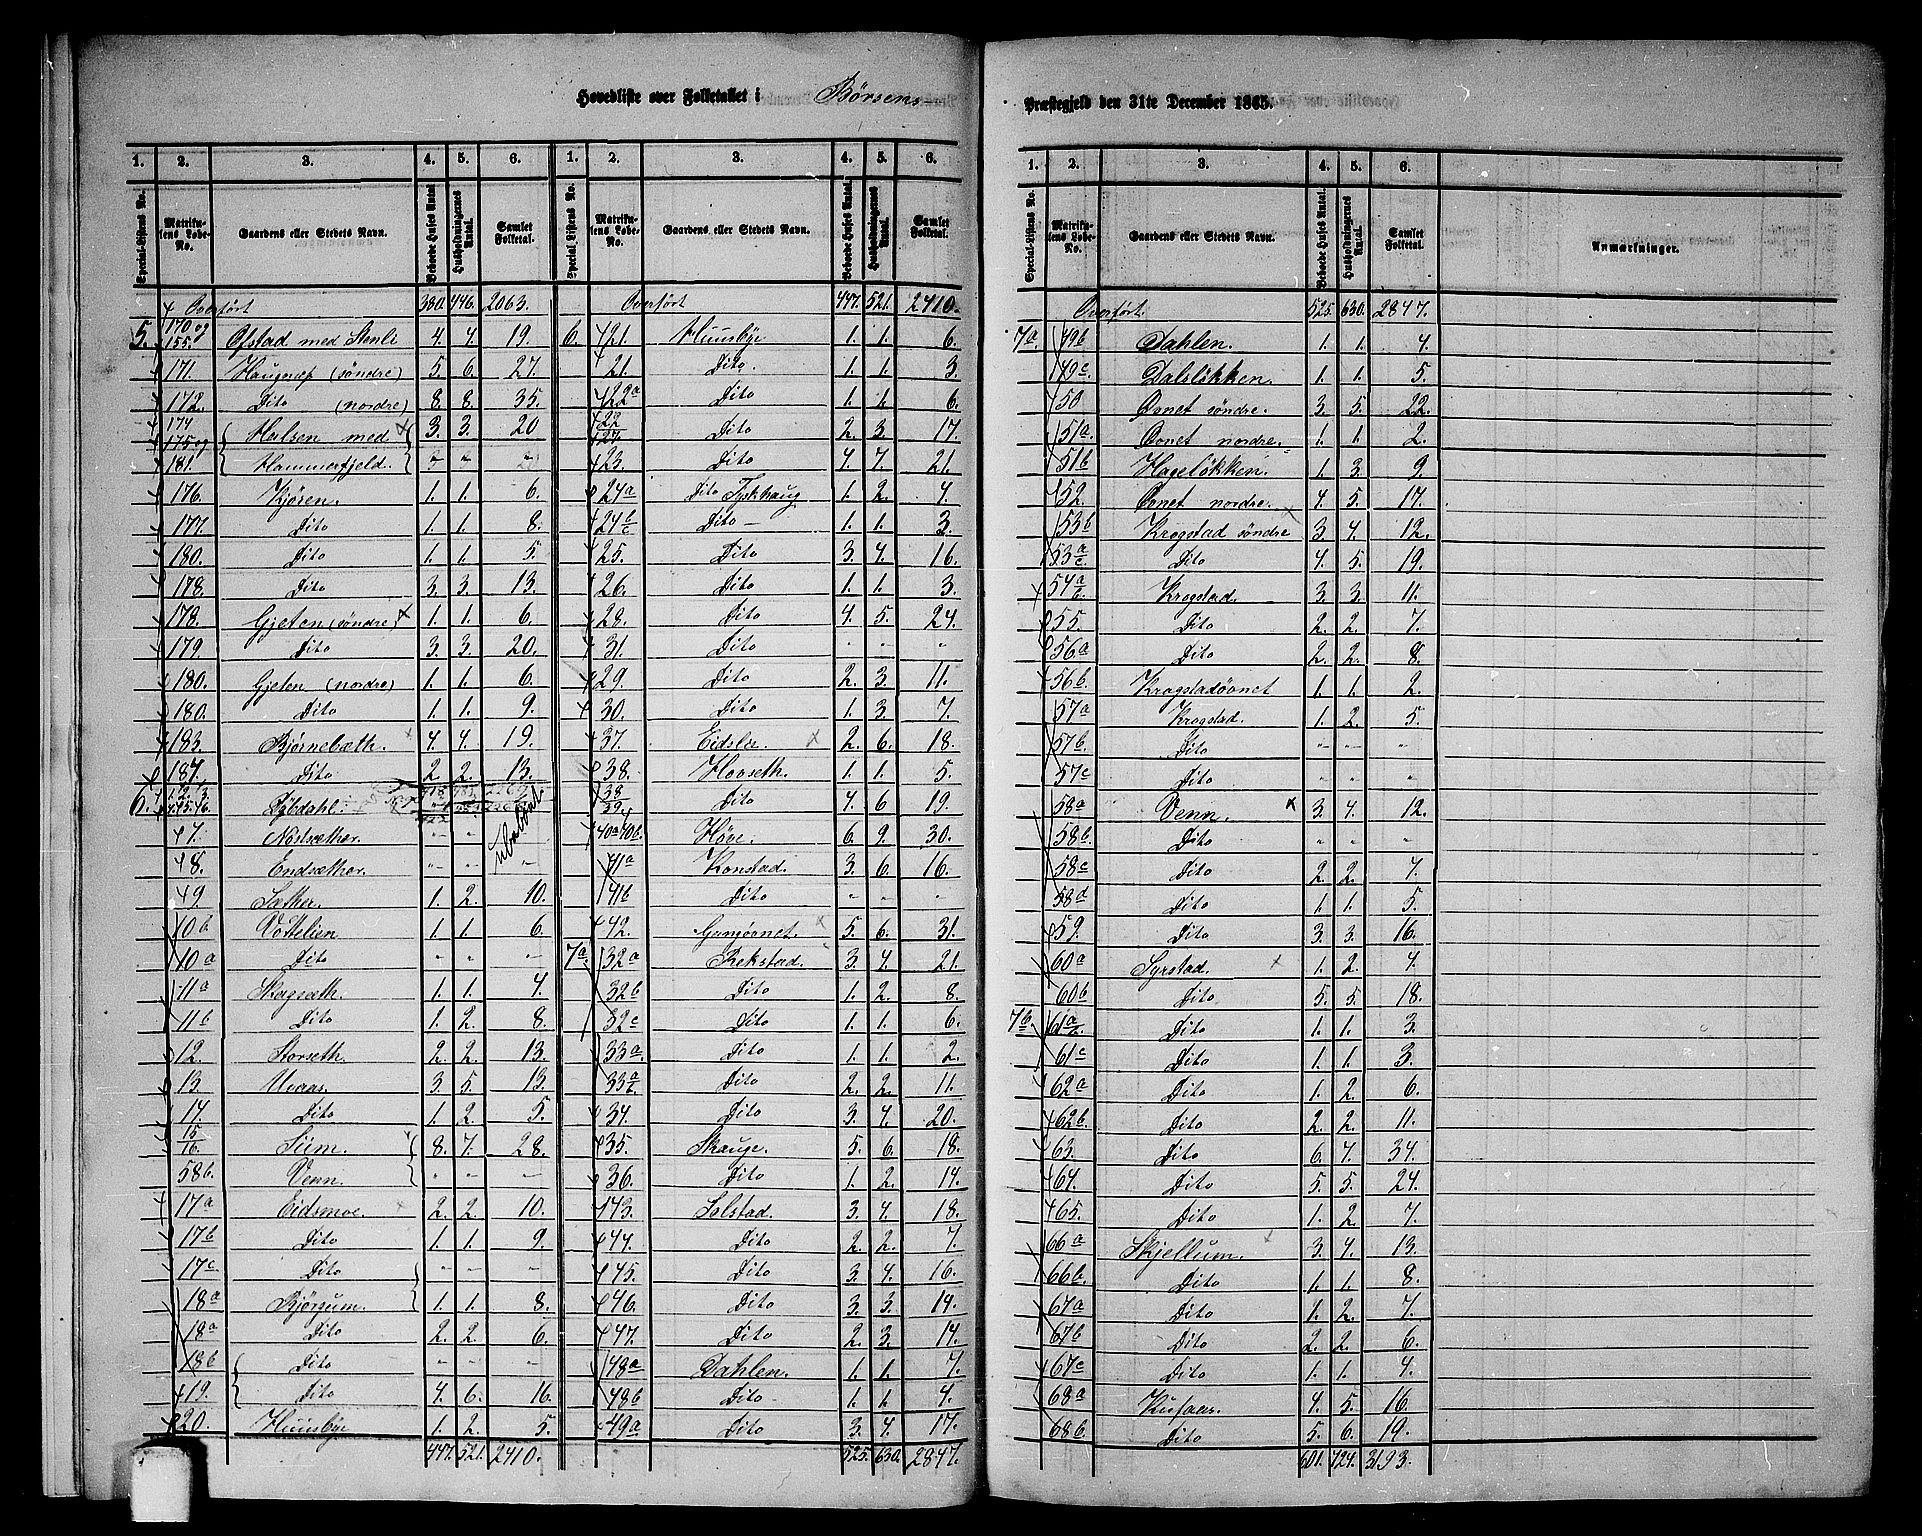 Hovedliste over Folketallet i Børsens Præstegjeld den 31te December 1865.
1. 2. 3. 4. 5. 6. 1. 2. 3. 4. 5. 6.
Special-Listens No. Matrikulens Løbe-No. Gaardens eller Stedets Navn. Beboede Huses Antal. Husholdningernes Antal. Samlet Folketal. Special-Listens No. Matrikulens Løbe-No. Gaardens eller Stedets Navn. Beboede Huses Antal. Husholdningernes Antal. Samlet Folketal.
Overført 380. 446. 2063.
5. 170 og 155. Ofstad med Stenli 4. 4. 19.
171. Haugnæs (søndre) 5. 6. 27.
172. Dito (nordre) 8. 8. 35.
174 175 og Halsen med 3. 3. 20
181. Hammerfjeld. " " "
176. Kjøren. 1. 1. 6.
177. Dito 1. 1. 8.
180. Dito 1. 1. 5.
178. Dito 3. 3. 13.
178. Gjeten (søndre) 1. 1. 6.
179. Dito 3. 3. 20.
180. Gjeten (nordre) 1. 1. 6.
180. Dito 1. 1. 9.
183. Bjørnebæth. 4. 4. 19.
187. Dito 2 2. 13.
6. 1. 2. 3. 4. 5. 6. ubeboet
47. Nøstsæther " "
48. Endsæther. " " "
49. Sæther. 1. 2. 10.
10b Vottelien 1. 1. 6.
10a Dito " " "
11a Skogsæth. 1. 1. 4.
11b Dito 1. 2. 8.
12. Storseth. 2. 2. 13.
13. Uvaas. 3. 5. 13.
14 Dito 1. 2. 5.
15 16. Siim. 8. 7. 28.
58b. Venn. " " "
17a Eidsmoe. 2. 2. 10.
17b Dito 1. 1. 9.
17c Dito " " "
18a Bjørsum. 1. 1. 8.
18a Dito 2. 2. 6.
18b Dito " " "
19. Dito 4. 6. 16.
20. Huusbye 1. 2. 5.
447. 521. 2410.
Overført 447. 521. 2410.
6. 21. Huusbye 1. 1. 6.
21. Dito. 1. 1. 3.
22a Dito 1. 1. 6
22 27. Dito 2. 3. 17.
23. Dito 4. 7. 21.
24a Dito Tyskhaug 1. 2. 4.
24b c Dito - 1. 1. 3.
25. Dito 3. 4. 16.
26. Dito 1. 1. 3.
28. Dito 4. 5. 24.
31. Dito " " "
29. Dito 2. 3. 11.
30. Dito 1. 3. 7.
37. Eidslie. 2. 6. 18.
38. Hovseth. 1. 1. 5.
38 39. Dito 4. 6 19.
40a 40b. Høve. 6. 9. 30.
41a Konstad. 3. 6. 16.
41b Dito " " "
42. Gangøonet. 5. 6. 31.
7a 32a Rekstad. 3. 4. 21.
32b Dito 1. 2. 8.
32c Dito 1. 1. 6.
33a Dito 1. 1. 2.
33a c Dito 2. 2. 11.
34. Dito 3. 4. 20.
35. Skauge. 5. 6. 18.
36. Dito 1. 2. 14.
43. Solstad. 3. 4. 18.
44. Dito 2. 2. 7.
45. Dito 3. 4. 16.
46. Dito 3. 3. 14.
47. Dito 2. 3. 14.
48a Dahlen. 1. 1. 7.
48b Dito 1. 1. 4.
49a Dito 3. 4. 17.
525. 630. 2847.
1. 2. 3. 4. 5. 6.
Special-Listens No. Matrikulens Løbe-No. Gaardens eller Stedets Navn. Beboede Huses Antal. Husholdningernes Antal. Samlet Folketal. Anmærkninger.
Overført. 525. 630. 2847.
7a 49b Dahlen. 1. 1. 4.
49c Dalsløkken. 1. 1. 5.
50 Øonet søndre. 3. 5. 22.
51a Øonet nordre. 1. 1. 2.
51b Hageløkken. 1. 3. 9.
52. Øonet nordre. 4. 5. 17.
53b Krogstad søndre 3. 4. 12.
53a c Dito 4. 5. 19.
54a c Krogstad. 3. 3. 11.
55. Dito 2. 2. 7.
56a Dito 2. 2. 8.
56b. Krogstadøonet 1. 1. 2.
57a Krogstad. 1. 2. 5.
57b. Dito " " "
57c Dito " " "
58a Venn. 3. 4. 12.
58b Dito " " "
58c Dito 2. 2. 7.
58d Dito 1. 1. 5.
59. Dito 3. 3. 16.
60a Syrstad. 1. 2. 4.
60b Dito 5. 5. 18.
7b 61a Dito 1. 1. 3.
61c Dito 1. 1. 3.
62a Dito 1. 2. 6.
62b. Dito 2. 2. 11.
63. Dito 6. 7. 34.
64. Dito 5. 5. 24.
65. Dito 1. 2. 7.
66a Skjellum. 3. 4. 13.
66b. Dito 1. 1. 8.
67a Dito 1. 2. 7.
67b Dito 2. 2. 6.
67c Dito 1. 1. 4.
68a Kufaas. 4. 5. 16.
68b Dito 5. 6. 19.
601. 724. 3193.